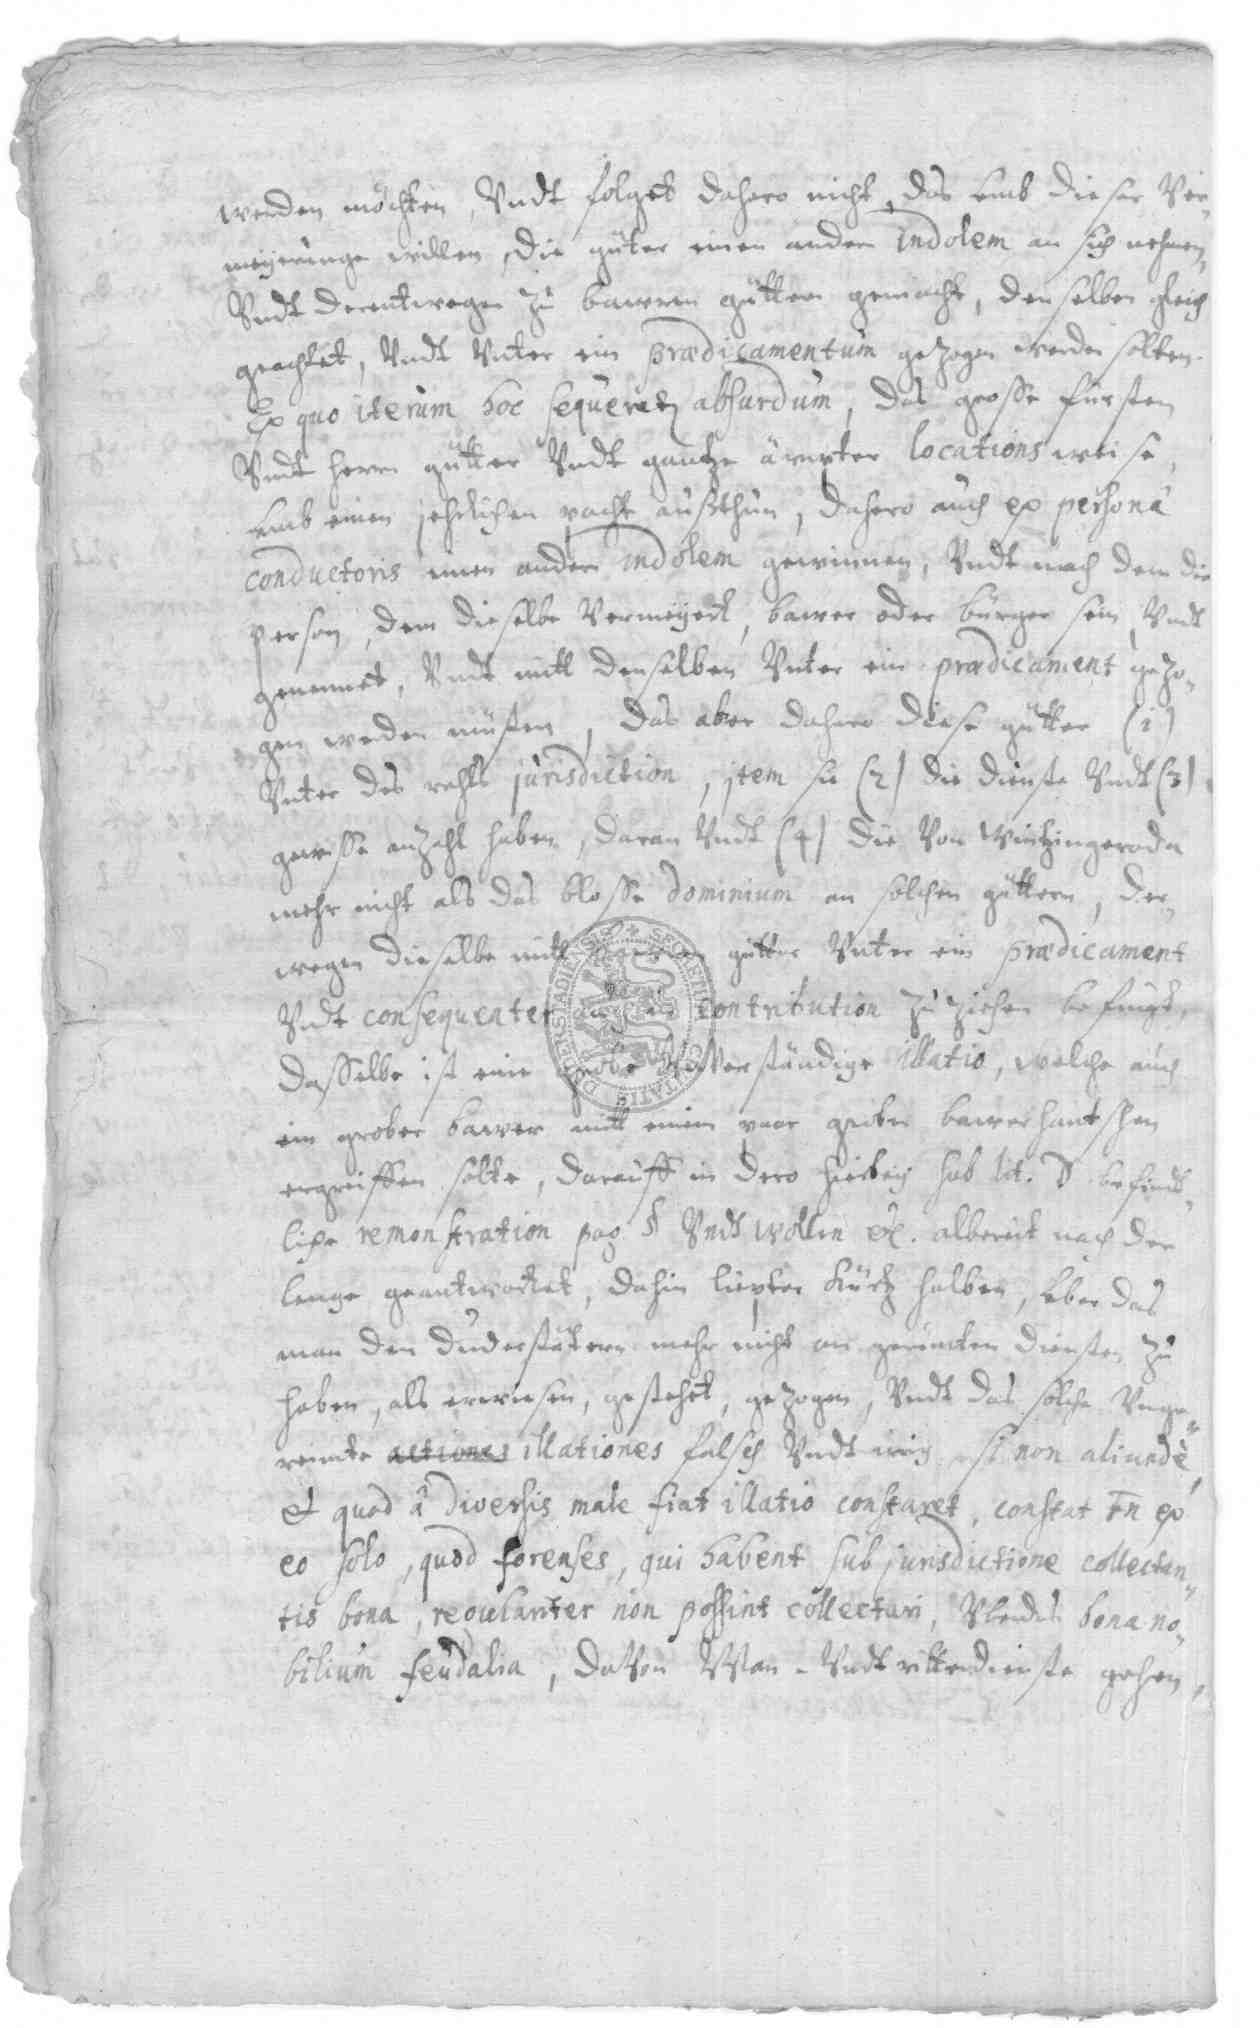 werden möchten, Vndt folget dahero nicht, das umb dieser Ver-
meyerunge willen, die güter einen andern indolem an sich nehmen,
Vndt derentwegen zu bawren güttern gemacht, denselben gleich
geachtet, Vndt Vnter ein prædicamentum gezogen werden solten.
Ex quo iterum hoc sequeretur absurdum, das grosse fürsten
Vndt herrn gütter Vndt gantze ämpter locations weise,
umb einen jehrlichen pacht außthun, dahero auch ex persona
conductoris einen andern indolem gewinnen, Vndt nach dem die
person, dem dieselbe Vermeyert, bawer oder bürger sein, Vndt
genennet, Vndt mitt denselben Vnter ein prædicament gezo-
gen werden müsten, das aber dahero diese gütter (1)
Vnter des rahts jurisdiction, item sie (2) die dienste Vndt (3)
gewisse anzahl haben, daran Vndt (4) die Von Wintzingeroda
mehr nicht als das blosse dominium an solchen güttern, der-
wegen dieselbe mitt gütter Vnter ein prædicament
Vndt consequenter contribution zu ziehen befugt,
dasselbe ist eine grobe VnVerständige illatio, welche auch
ein grober bawer mitt einem paar grober bawerhantschen
ergreiffen solte, darauff in dero hiebey sub lit. D befind-
liche remonstration pag § Vndt wollen etc. albereit nach der
lenge geantwortet, dahin liepter kürtz halben, das
man den Duderstätern mehr nicht an diensten zu
haben, als erwiesen, gestehet, gezogen, Vndt das solche Vnge-
reimte actiones illationes falsch Vndt irrig, si non aliunde,
& quod â diversis male fiat illatio constaret, constat tn ex
eo solo, quod forenses, qui habent sub jurisdictione collectan-
tis bona, regulariter non possint collectari, bona no-
bilium feudalia, daVon Vndt ritterdienste gehen,